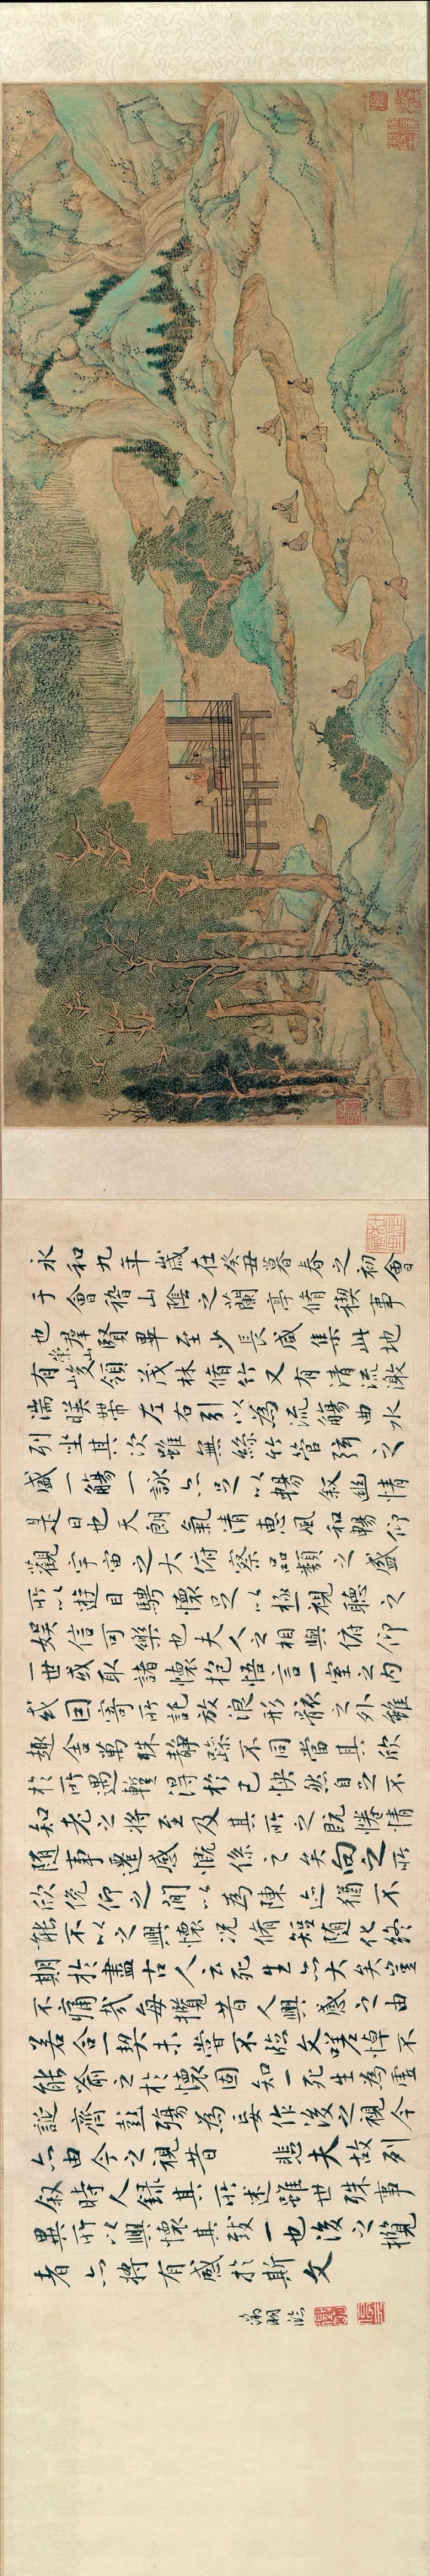 永和九年歲在癸丑暮春之初會
于會稽山陰之蘭亭脩稧事
也群賢畢至少長咸集此地
有崇山峻領茂林脩竹又有清流激
湍暎帶左右引以為流觴曲水
列坐其次雖無絲竹管弦之
盛一觴一詠亦足以暢叙幽情
是日也天朗氣清惠風和暢仰
觀宇宙之大俯察品類之盛
所以遊目騁懷足以極視聽之
娛信可樂也夫人之相與俯仰
一世或取諸懷抱悟言一室之內
或因寄所託放浪形骸之外雖
趣舍萬殊靜躁不同當其欣
於所遇蹔得於己怏然自足不
知老之將至及其所之既惓情
隨事遷感慨係之矣向之所
欣俛仰之間以為陳迹猶不
能不以之興懷況脩短隨化終
期於盡古人云死生亦大矣豈
不痛哉每攬昔人興感之由
若合一契未嘗不臨文嗟悼不
能喻之於懷固知一死生為虛
誕齊彭殤為妄作後之視今
亦由今之視昔 悲夫故列
叙時人錄其所述雖世殊事
異所以興懷其致一也後之攬
者亦將有感於斯文
徵明臨